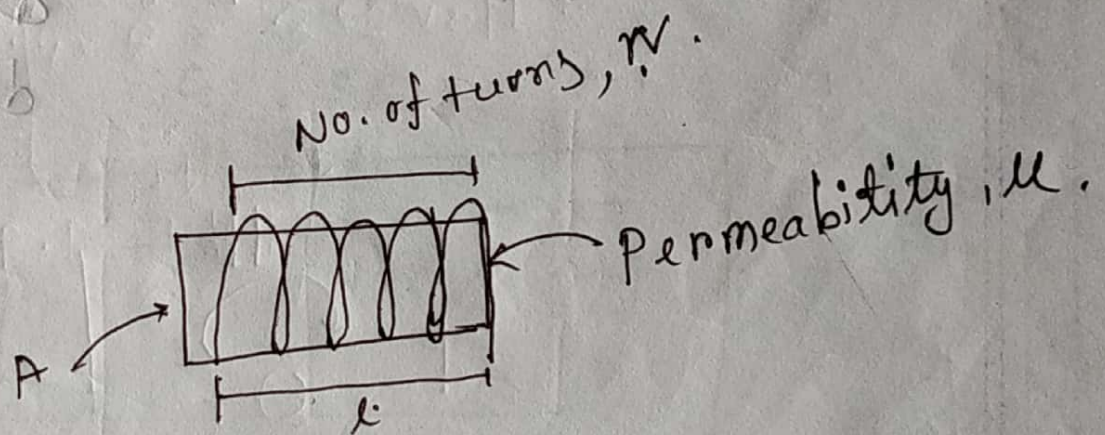 No. of turns, N.
Permeabitity, μ.
A
l